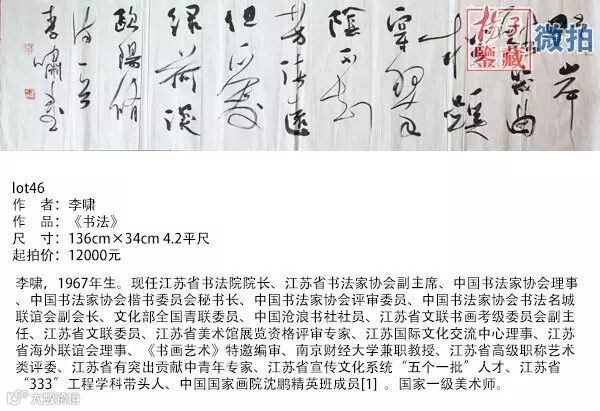 野岸
溪幾曲
松蹊
穿翠
陰不知
芳渚遠
但愛
綠荷深
歐陽脩
詩一首
李嘯書
揚子鑒藏
微拍
lot46
作 者：李啸
作 品：《书法》
尺 寸：136cm×34cm 4.2平尺
起拍价：12000元
李啸，1967年生。现任江苏省书法院院长、江苏省书法家协会副主席、中国书法家协会理事
、中国书法家协会楷书委员会秘书长、中国书法家协会评审委员、中国书法家协会书法名城
联谊会副会长、文化部全国青联委员、中国沧浪书社社员、江苏省文联书画考级委员会副主
任、江苏省文联委员、江苏省美术馆展览资格评审专家、江苏国际文化交流中心理事、江苏
省海外联谊会理事、《书画艺术》特邀编审、南京财经大学兼职教授、江苏省高级职称艺术
类评委、江苏省有突出贡献中青年专家、江苏省宣传文化系统“五个一批”人才、江苏省
“333”工程学科带头人、中国国家画院沈鹏精英班成员[1] 。国家一级美术师。
大众跨境